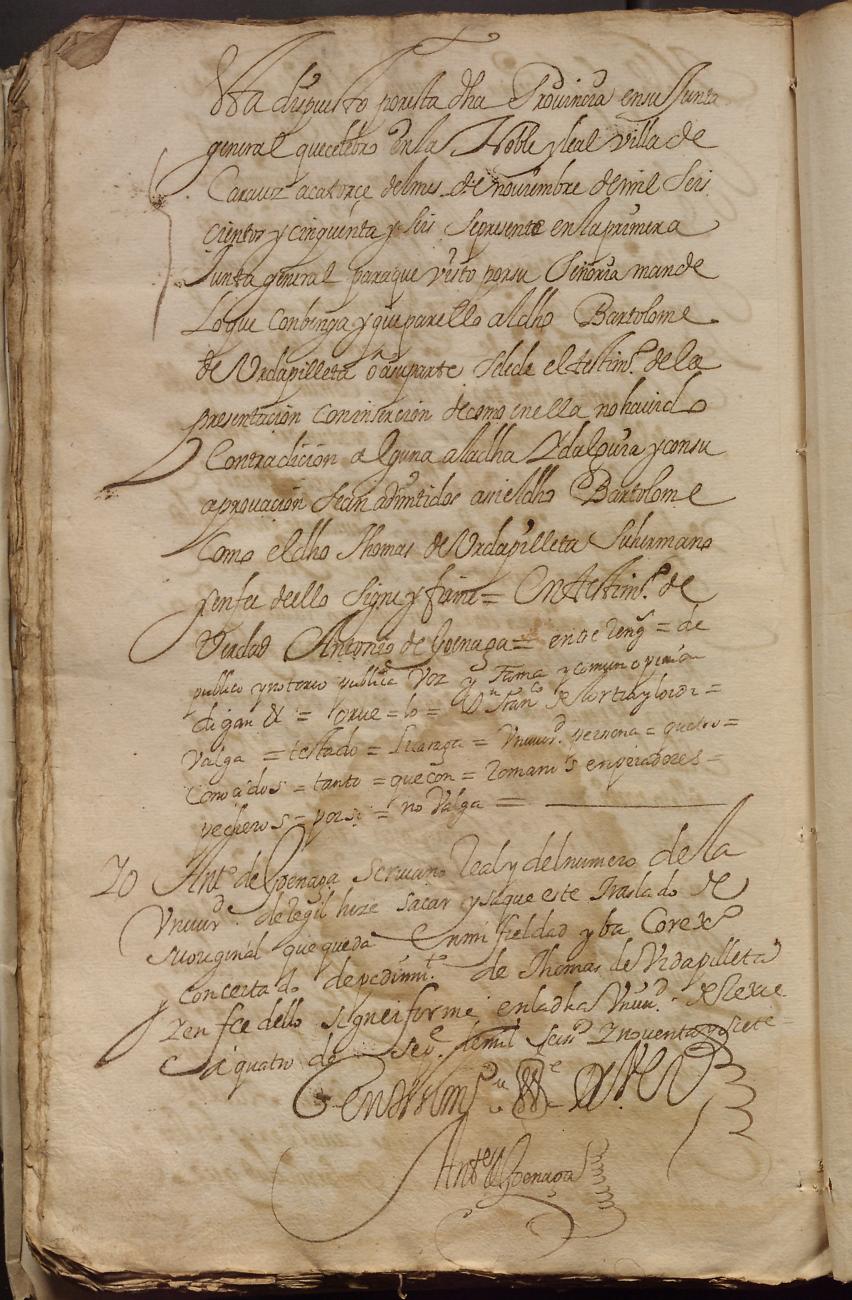 Está dispuesto por esta dha Provincia en su Junta
general que celebro en la Noble y leal villa de
a catorce del mes de noviembre de mil Seis
cientos y cinquenta y seis Se presente en la primera
Junta general para que visto por su Señoria mande
Lo que Conbenga y que para ello al dho Bartolome
de Urdapilleta o a su parte Se le de el testimo. de la
presentacion con insercion de como en ella no haviendo
Contradicion alguna a la dha Ydalguia y con su
aprovacion Sean admitidos asi el dho Bartolome
Como el dho Thomas de Urdapilleta Su hermano
y en fee de ello Signe y firme = En testimo. de
Verdad Antonio de Goenaga = entre Rengs = de
publico y notorio publica Voz y Fama y comun opinion
digan & = = lo =
Valga = testado = = persona =
= tanto = que con = Romanos enperadores =
pecheros = por si = no Valga =
Yo Anto. de Goenaga Scrivano Real y del numero de la
de Regil hize sacar y saque este Traslado de
su original que queda En mi fieldad y ba Corexdo
y Concertado de pedimito. de Thomas de Urdapilleta
y en fee dello signe i firme en la dha de Rexil
a quatro de de mil Seisos y noventa y siete
En testimo de Verd
Anto de Goenaga